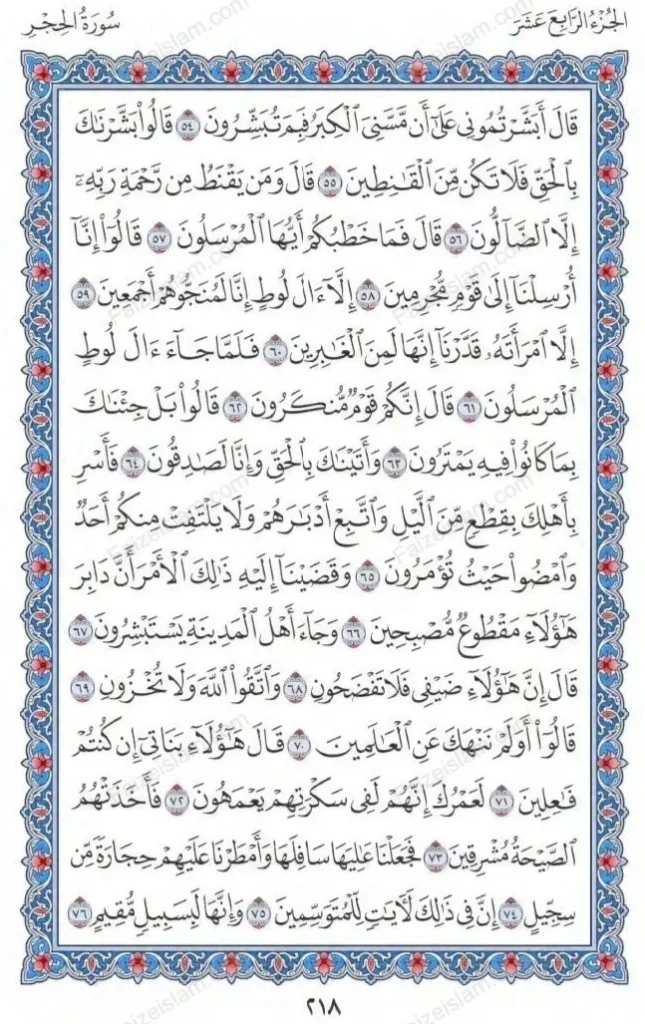 الجُزْءُ الرَّابِعَ عَشَرَ
سُورَةُ الحِجْرِ
قَالَ أَبَشَّرْتُمُونِى عَلَىٰٓ أَن مَّسَّنِىَ ٱلْكِبَرُ فَبِمَ تُبَشِّرُونَ ٥٤ قَالُوا۟ بَشَّرْنَٰكَ
بِٱلْحَقِّ فَلَا تَكُن مِّنَ ٱلْقَٰنِطِينَ ٥٥ قَالَ وَمَن يَقْنَطُ مِن رَّحْمَةِ رَبِّهِۦٓ
إِلَّا ٱلضَّآلُّونَ ٥٦ قَالَ فَمَا خَطْبُكُمْ أَيُّهَا ٱلْمُرْسَلُونَ ٥٧ قَالُوٓا۟ إِنَّآ
أُرْسِلْنَآ إِلَىٰ قَوْمٍ مُّجْرِمِينَ ٥٨ إِلَّآ ءَالَ لُوطٍ إِنَّا لَمُنَجُّوهُمْ أَجْمَعِينَ ٥٩
إِلَّا ٱمْرَأَتَهُۥ قَدَّرْنَآ إِنَّهَا لَمِنَ ٱلْغَٰبِرِينَ ٦٠ فَلَمَّا جَآءَ ءَالَ لُوطٍ
ٱلْمُرْسَلُونَ ٦١ قَالَ إِنَّكُمْ قَوْمٌ مُّنكَرُونَ ٦٢ قَالُوا۟ بَلْ جِئْنَٰكَ
بِمَا كَانُوا۟ فِيهِ يَمْتَرُونَ ٦٣ وَأَتَيْنَٰكَ بِٱلْحَقِّ وَإِنَّا لَصَٰدِقُونَ ٦٤ فَأَسْرِ
بِأَهْلِكَ بِقِطْعٍ مِّنَ ٱلَّيْلِ وَٱتَّبِعْ أَدْبَٰرَهُمْ وَلَا يَلْتَفِتْ مِنكُمْ أَحَدٌ
وَٱمْضُوا۟ حَيْثُ تُؤْمَرُونَ ٦٥ وَقَضَيْنَآ إِلَيْهِ ذَٰلِكَ ٱلْأَمْرَ أَنَّ دَابِرَ
هَٰٓؤُلَآءِ مَقْطُوعٌ مُّصْبِحِينَ ٦٦ وَجَآءَ أَهْلُ ٱلْمَدِينَةِ يَسْتَبْشِرُونَ ٦٧
قَالَ إِنَّ هَٰٓؤُلَآءِ ضَيْفِى فَلَا تَفْضَحُونِ ٦٨ وَٱتَّقُوا۟ ٱللَّهَ وَلَا تُخْزُونِ ٦٩
قَالُوٓا۟ أَوَلَمْ نَنْهَكَ عَنِ ٱلْعَٰلَمِينَ ٧٠ قَالَ هَٰٓؤُلَآءِ بَنَاتِىٓ إِن كُنتُمْ
فَٰعِلِينَ ٧١ لَعَمْرُكَ إِنَّهُمْ لَفِى سَكْرَتِهِمْ يَعْمَهُونَ ٧٢ فَأَخَذَتْهُمُ
ٱلصَّيْحَةُ مُشْرِقِينَ ٧٣ فَجَعَلْنَا عَٰلِيَهَا سَافِلَهَا وَأَمْطَرْنَا عَلَيْهِمْ حِجَارَةً مِّن
سِجِّيلٍ ٧٤ إِنَّ فِى ذَٰلِكَ لَءَايَٰتٍ لِّلْمُتَوَسِّمِينَ ٧٥ وَإِنَّهَا لَبِسَبِيلٍ مُّقِيمٍ ٧٦
٢١٨
Faizeislam.com